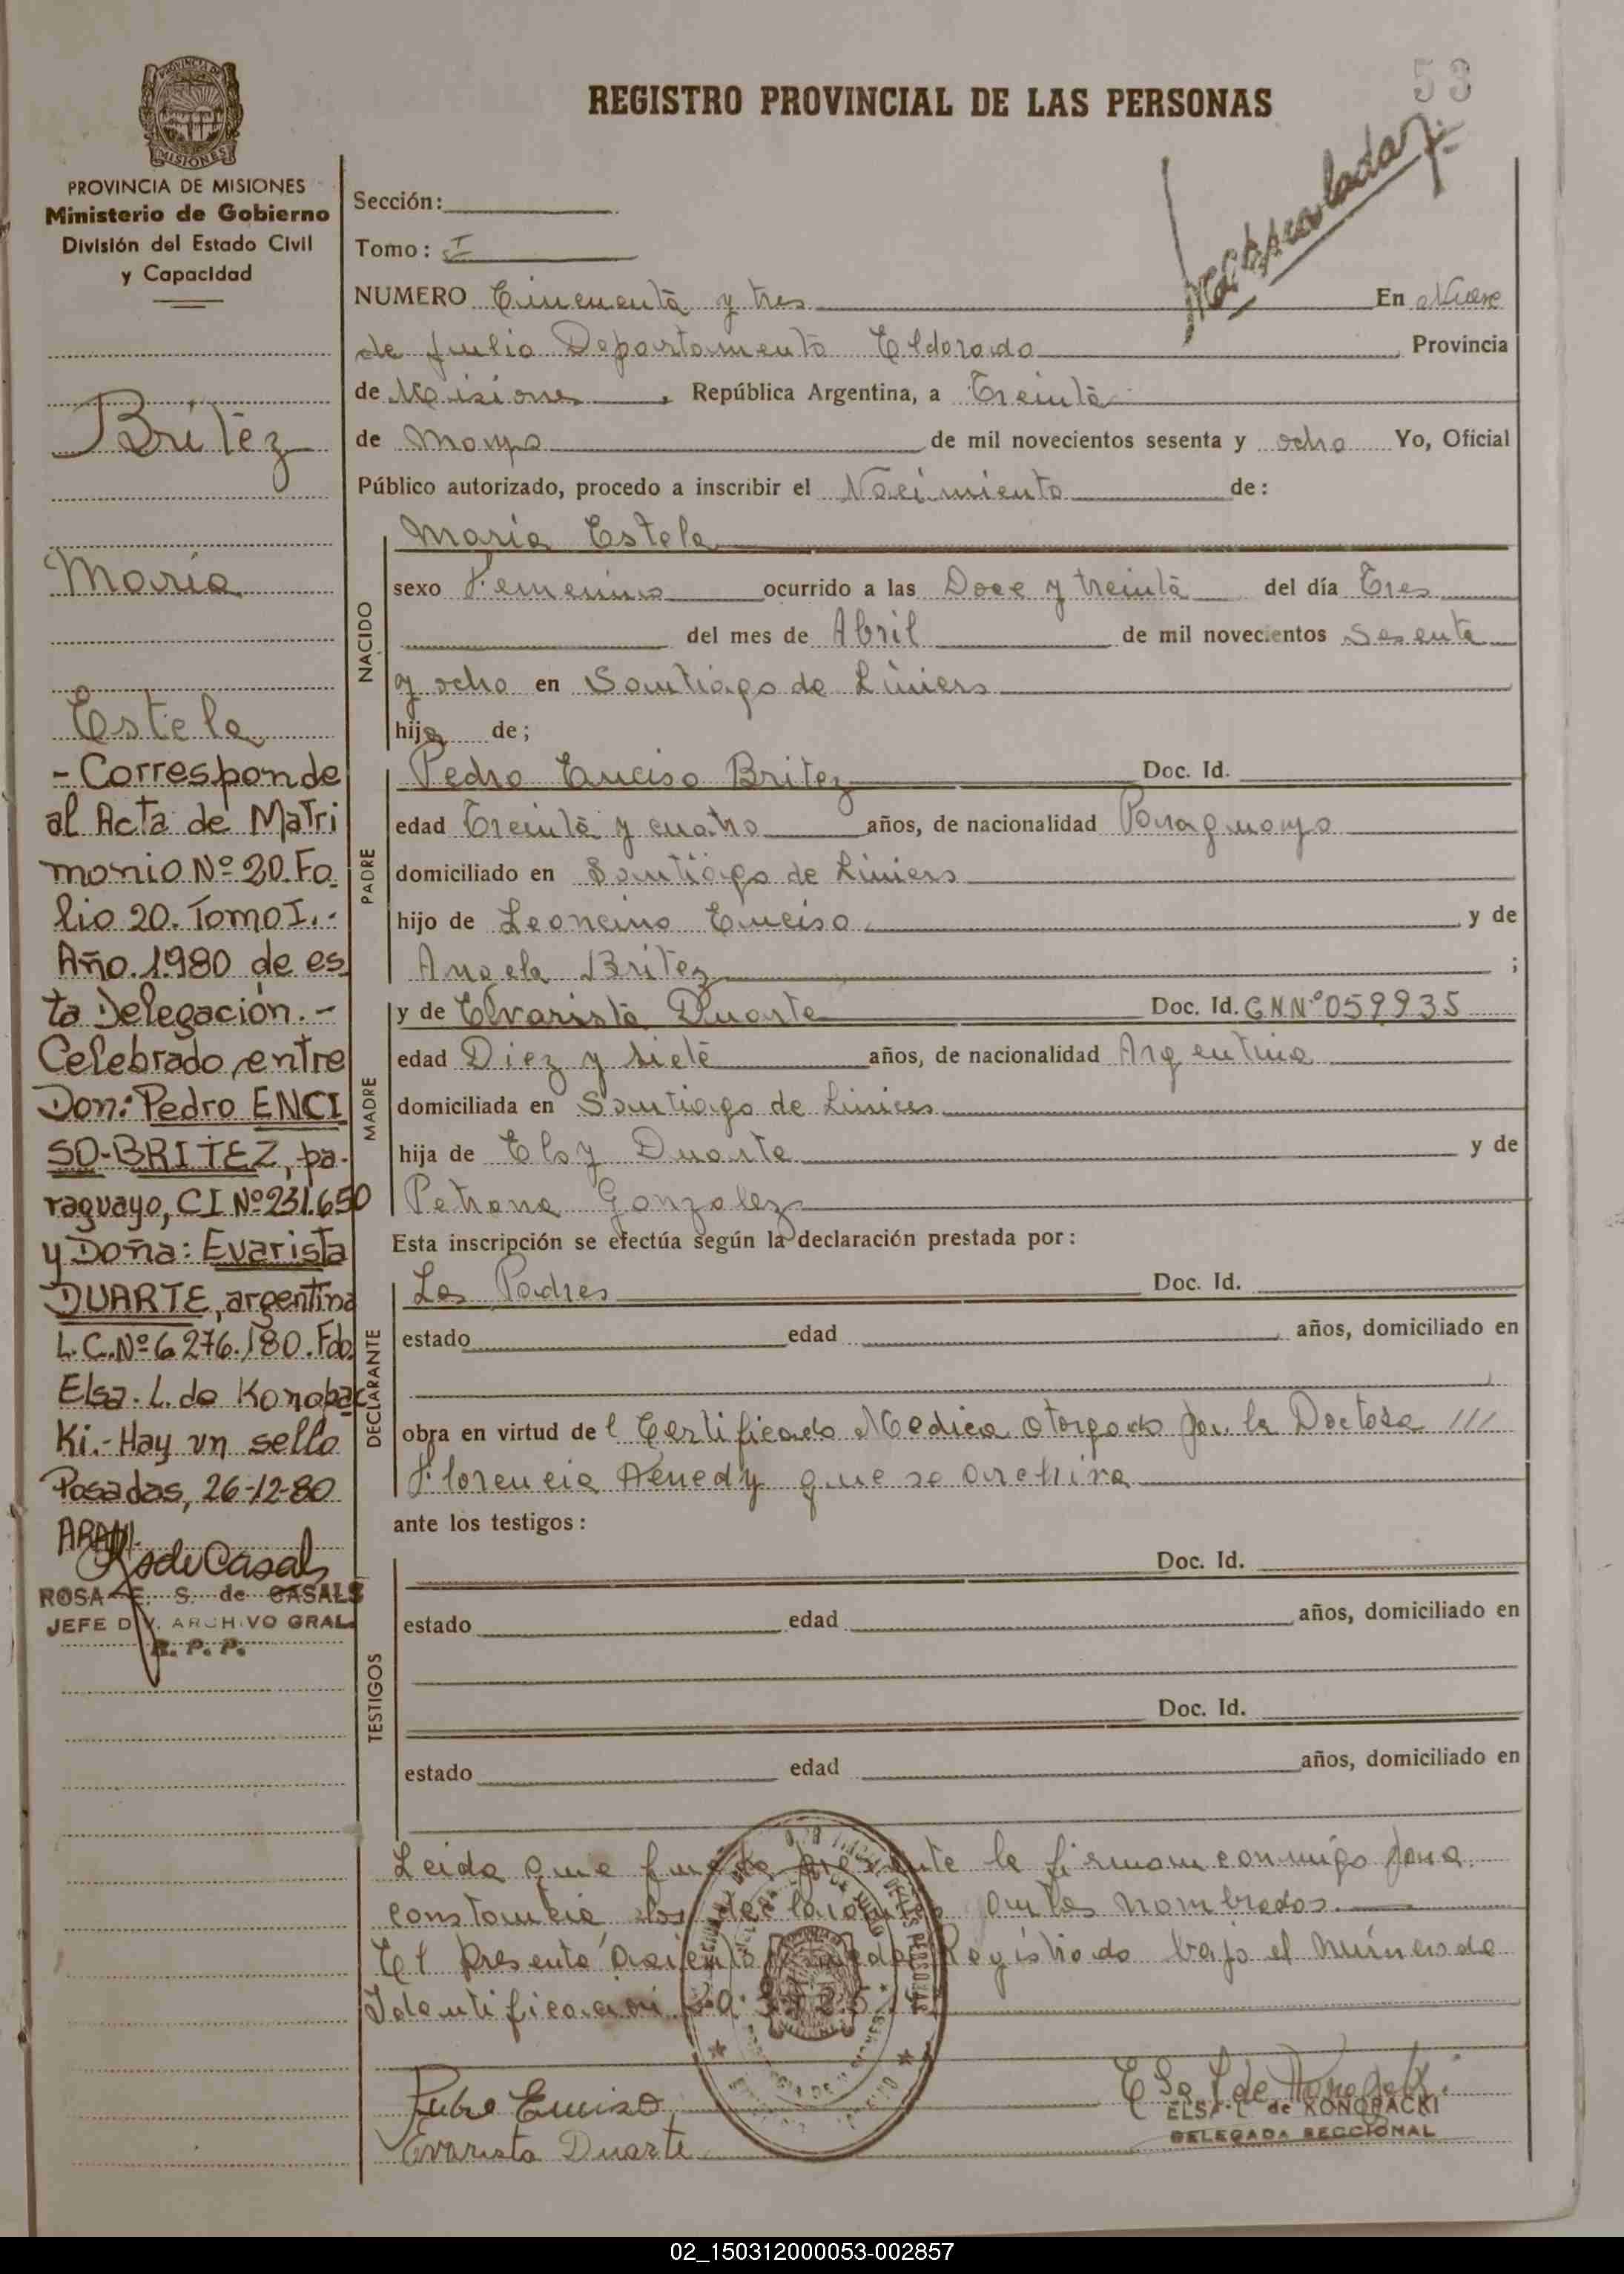 53
REGISTRO PROVINCIAL DE LAS PERSONAS
PROVINCIA DE
MISIONES
PROVINCIA DE MISIONES
Ministerio de Gobierno
División del Estado Civil
y Capacidad
Britez
María
Estela
- Corresponde
al Acta de Matri
monio Nº 20. Fo.
lio 20. Tomo I.-
Año 1980 de es
ta Delegación.-
Celebrado, entre
Don: Pedro ENCI
SO-BRITEZ, pa-
raguayo, CI Nº 231.650
y Doña: Evarista
DUARTE, argentina
L.C.Nº 6.276.180. Fdo.
Elsa. L. de Konopac
Ki.- Hay un sello
Posadas, 26-12-80
ROSA E. S. de CASALS
JEFE DIV. ARCHIVO GRAL.
R. P. P.
Sección:
Tomo: I
NUMERO Cincuenta y tres En Nueve
de Julio Departamento Eldorado Provincia
de Misiones, República Argentina, a Treinta
de Mayo de mil novecientos sesenta y ocho Yo, Oficial
Público autorizado, procedo a inscribir el Nacimiento de:
NACIDO
María Estela
sexo Femenino ocurrido a las Doce y treinta del día Tres
del mes de Abril de mil novecientos Sesenta
y ocho en Santiago de Liniers
hija de;
PADRE
Pedro Enciso Britez Doc. Id.
edad Treinta y cuatro años, de nacionalidad Paraguayo
domiciliado en Santiago de Liniers
hijo de Leoncino Enciso y de
Angela Britez ;
MADRE
y de Evarista Duarte Doc. Id. G.N.Nº 059935
edad Diez y siete años, de nacionalidad Argentina
domiciliada en Santiago de Liniers
hija de Eloy Duarte y de
Petrona Gonzalez
Esta inscripción se efectúa según la declaración prestada por:
DECLARANTE
Los Padres Doc. Id.
estado edad años, domiciliado en
obra en virtud del Certificado Medico otorgado por la Doctora ///
Florencia que se archiva
ante los testigos:
TESTIGOS
Doc. Id.
estado edad años, domiciliado en
Doc. Id.
estado edad años, domiciliado en
Leida que fue la presente la firman conmigo para
constancia los declarantes antes nombrados.
El presente asiento queda Registrado bajo el número de
Identificación
Enciso
Evarista Duarte
ELSA L. de KONOPACKI
DELEGADA SECCIONAL
02_150312000053-002857